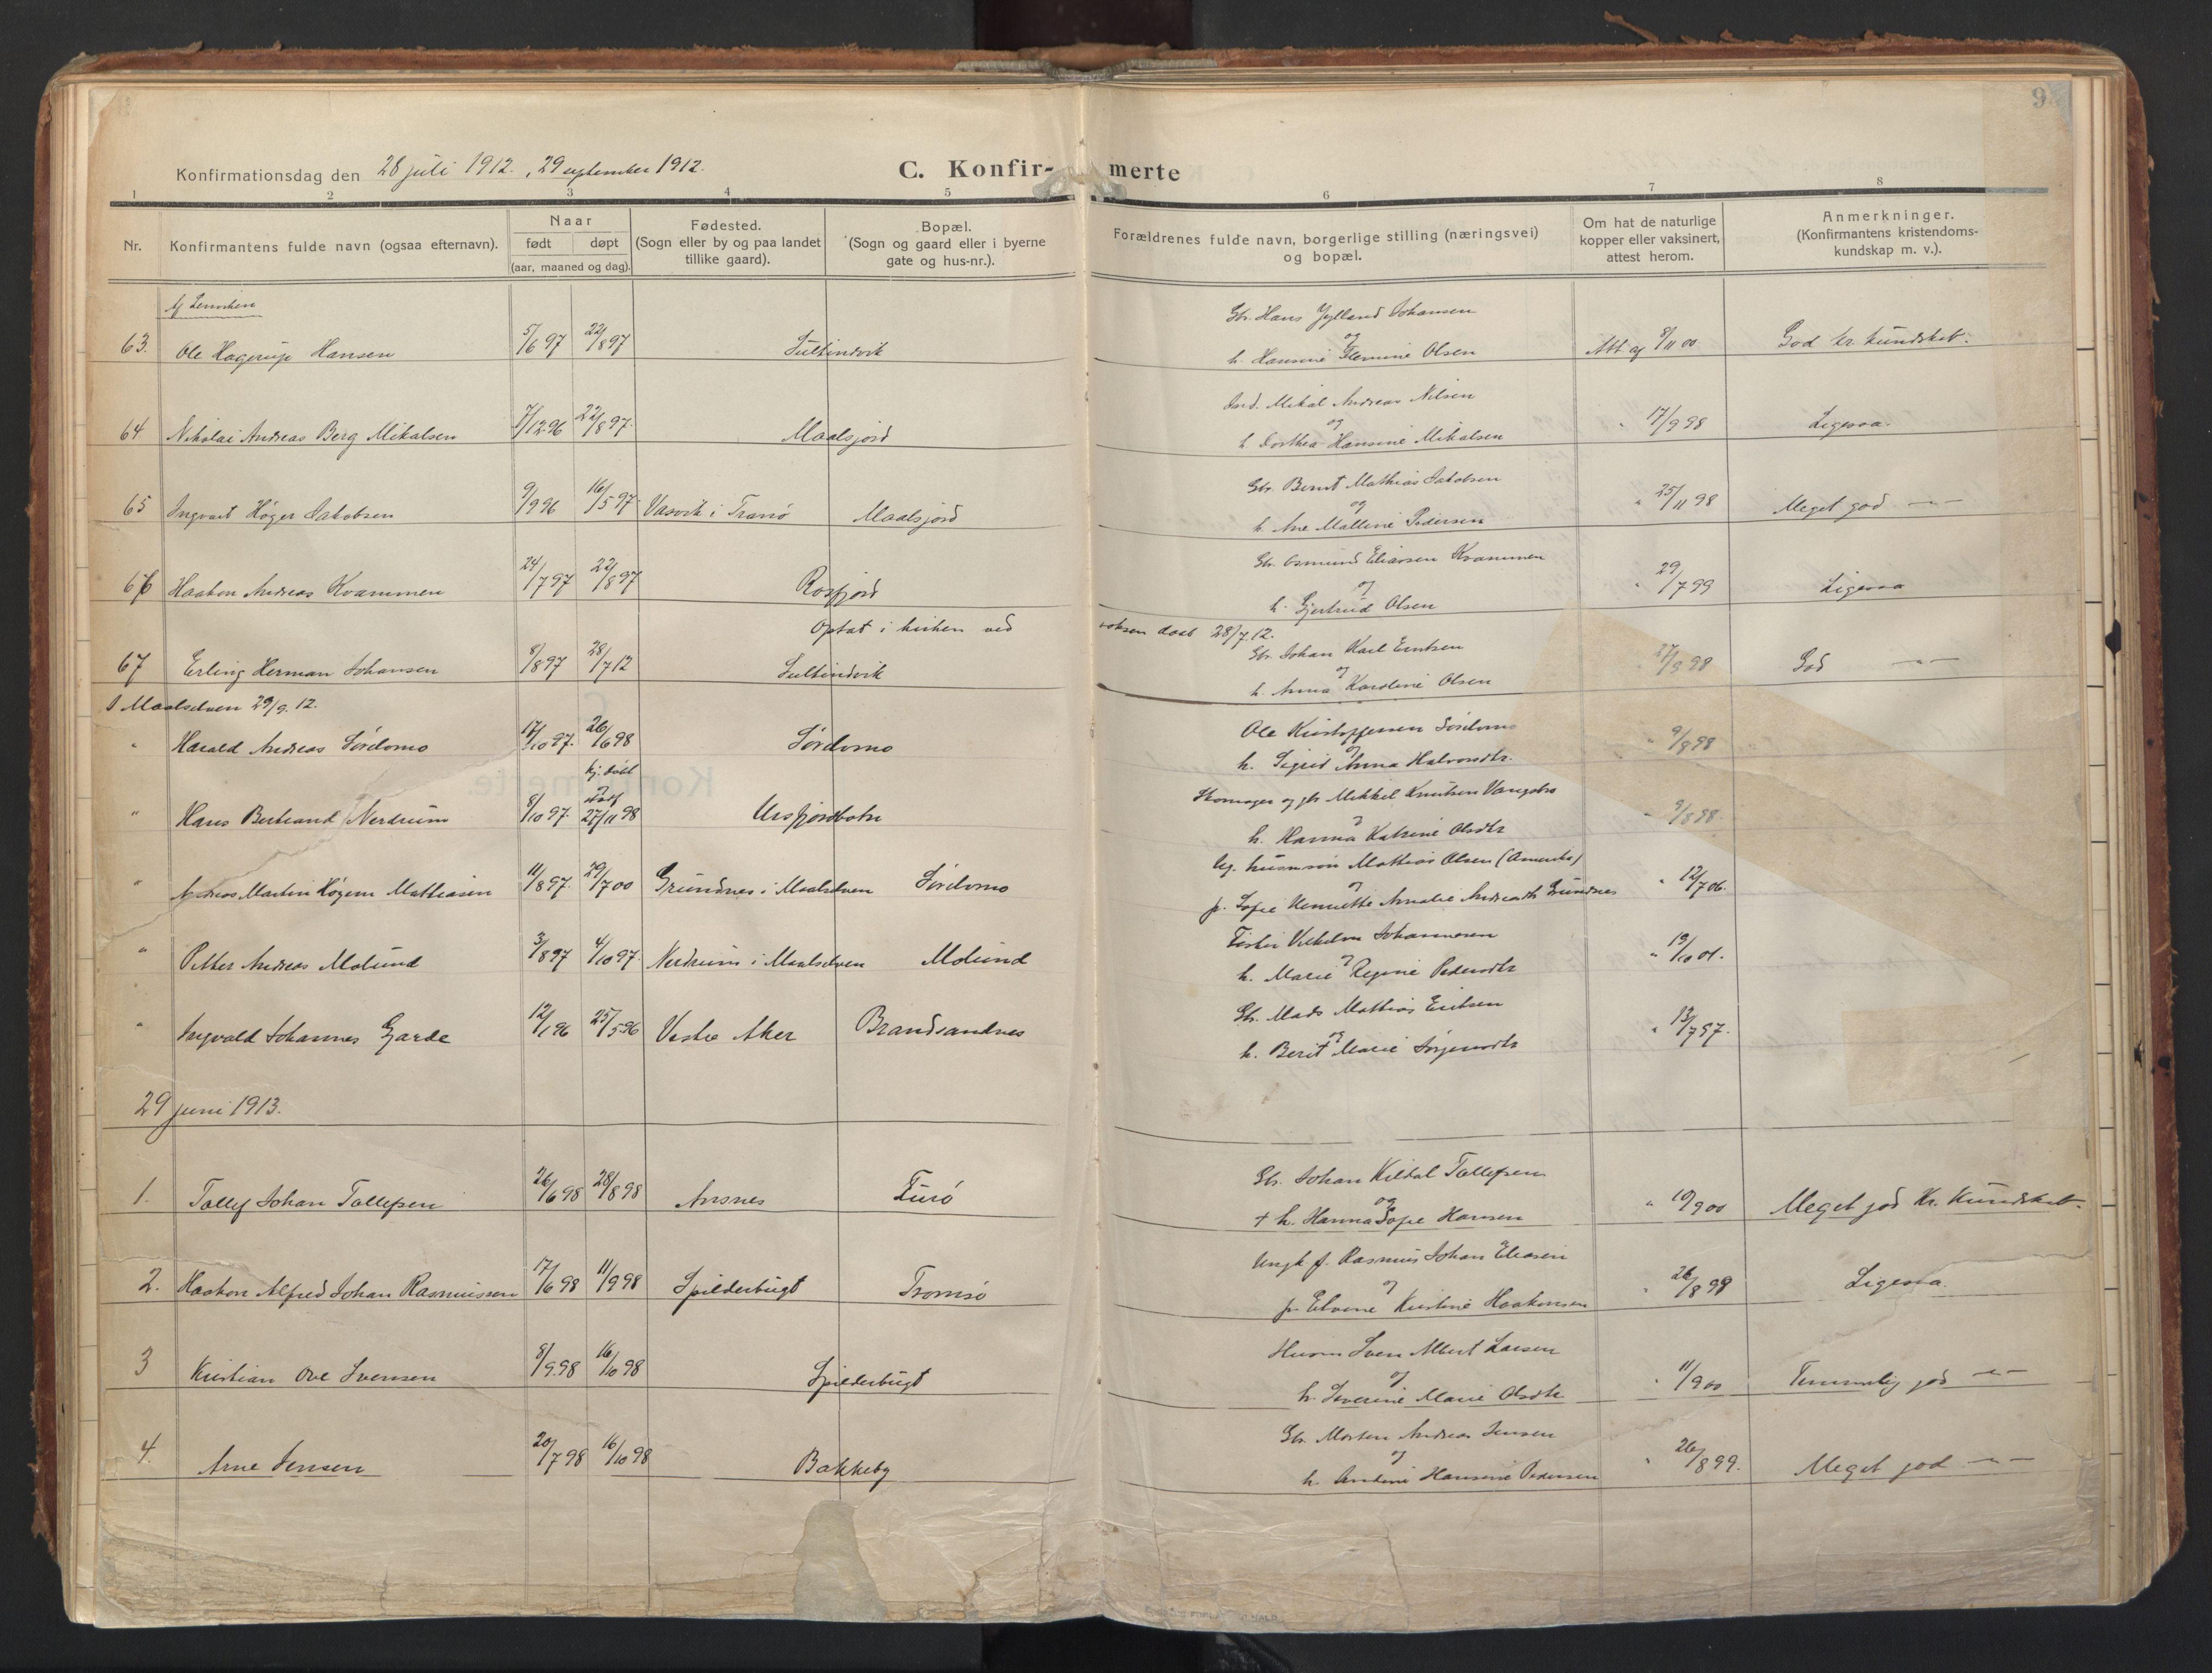 9
Konfirmationsdag den 28 juli 1912. , 29 september 1912.
C. Konfir- merte
1 2 3 4 5 6 7 8
Nr. Konfirmantens fulde navn (ogsaa efternavn). Naar født døpt (aar, maaned og dag). Fødested. (Sogn eller by og paa landet tillike gaard). Bopæl. (Sogn og gaard eller i byerne gate og hus-nr.). Forældrenes fulde navn, borgerlige stilling (næringsvei) og bopæl. Om hat de naturlige kopper eller vaksinert, attest herom. Anmerkninger. (Konfirmantens kristendoms- kundskap m. v.).
Af Lenviken
Gbr. Hans Jylland Johansen
63. Ole Hagerup Hansen 5/6 97 22/8 97 Sultindvik og Att af 8/11 00 God kr. kundskab.
h. Hansine Olsen
Ind. Mikal Andreas Nilsen
64 Nikolai Andreas Berg Mikalsen 7/12 96 22/8 97. Maalsjord og " 17/9 98 Ligesaa.
h. Dorthea Hansine Mikalsen
Gbr. Bernt Mathias Jakobsen
65 Ingvart Høger Jakobsen 9/9 96 16/5 97. Vasvik i Tranö Maalsjord og " 25/11 98 Meget god -"-
h. Ane Malline Pedersen
Gbr. Osmund Eliassen Kvammen
66 Haakon Andreas Kvammen 24/7 97 22/8 97 Rosfjord og " 29/7 99 Ligesaa
h. Gjertrud Olsen
Optat i kirken ved voksen daab 28/7.12.
Gbr. Johan Karl Erntsen
67 Erling Herman Johansen 8/8 97 28/7 12 Sultindvik og " 27/9 98 God -"-
h. Anna Karoline Olsen
I Maalselven 29/9. 12.
Ole Kristoffersen Sördomo
" Harald Andreas Sördomo 17/10 97. 26/6 98 Sördomo og " 9/8 98
h. Sigrid Anna Halvorsdtr.
hj. döbt
Skomager og gbr Mikkel Knutsen Vangsbo
" Hans Bertrand Nerdrum 8/10 97. 27/11 98 Ursfjordbotn og " 9/8 98.
h. Hanna Katrine Olsdtr
Ug. husmsön Mathias Olsen (Amerika)
" Andreas Martin Högem Mathiasen 11/8 97. 29/7 00 Grundnes i Maalselven Sördomo og " 12/7 06.
p. Sofie Henriette Amalie Andreasdtr Grundnes
Fisker Vilhelm Johannesen
" Petter Andreas Molund 3/8 97 4/10 97. Nerdrum i Maalselven Molund og " 19/10 01.
h. Marie Regine Pedersdtr
Gbr. Mads Mathias Eriksen
" Ingvald Johannes Garde 12/1 96 25/5 96 Vestre Aker Brandsandnes og " 13/7 97.
h. Berit Marie Jörjensdtr
29 juni 1913.
Gbr. Johan Kildal Tollefsen
1. Tollef Johan Tollefsen 26/6 98 28/8 98 Ansnes Tusö og " 19/9 00 Meget god Kr. Kundskab.
+ h. Hanna Sofie Hansen
Ungk f. Rasmus Johan Eliasen
2. Haakon Alfred Johan Rasmussen 17/6 98 11/9 98 Spilderbugt Tromsö og " 26/8 99 Ligesaa.
p. Elvine Kristine Haakonsen
Husm Sven Albert Larsen
3 Kristian Ove Svensen 8/9.98 16/10 98 Spilderbugt og " 11/9 00 Temmelig god -"-
h. Severine Marie Olsdtr
Gbr. Morten Andreas Jensen
4. Arne Jensen 20/7 98 16/10 98 Bakkeby og " 26/8 99. Meget god -"-
h. Antine Hansine Pedersen